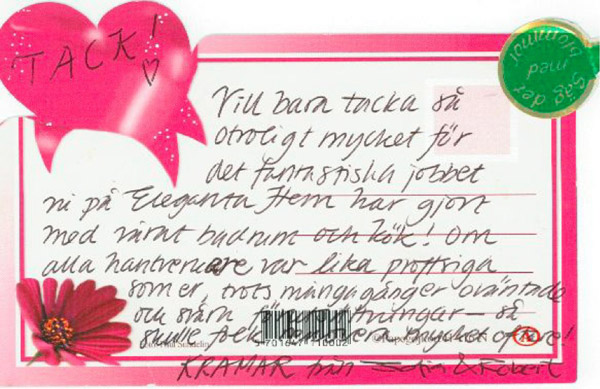 TACK!
Säg det
med
blommor
Vill bara tacka så
otroligt mycket för
det fantastiska jobbet
ni på Eleganta Hem har gjort
med vårat badrum och kök! Om
alla hantverkare var lika proffsiga
som er, trots många gånger oväntade
och svåra — så
skulle folk mycket oftare!
5 701647 110002
KRAMAR från & Robert